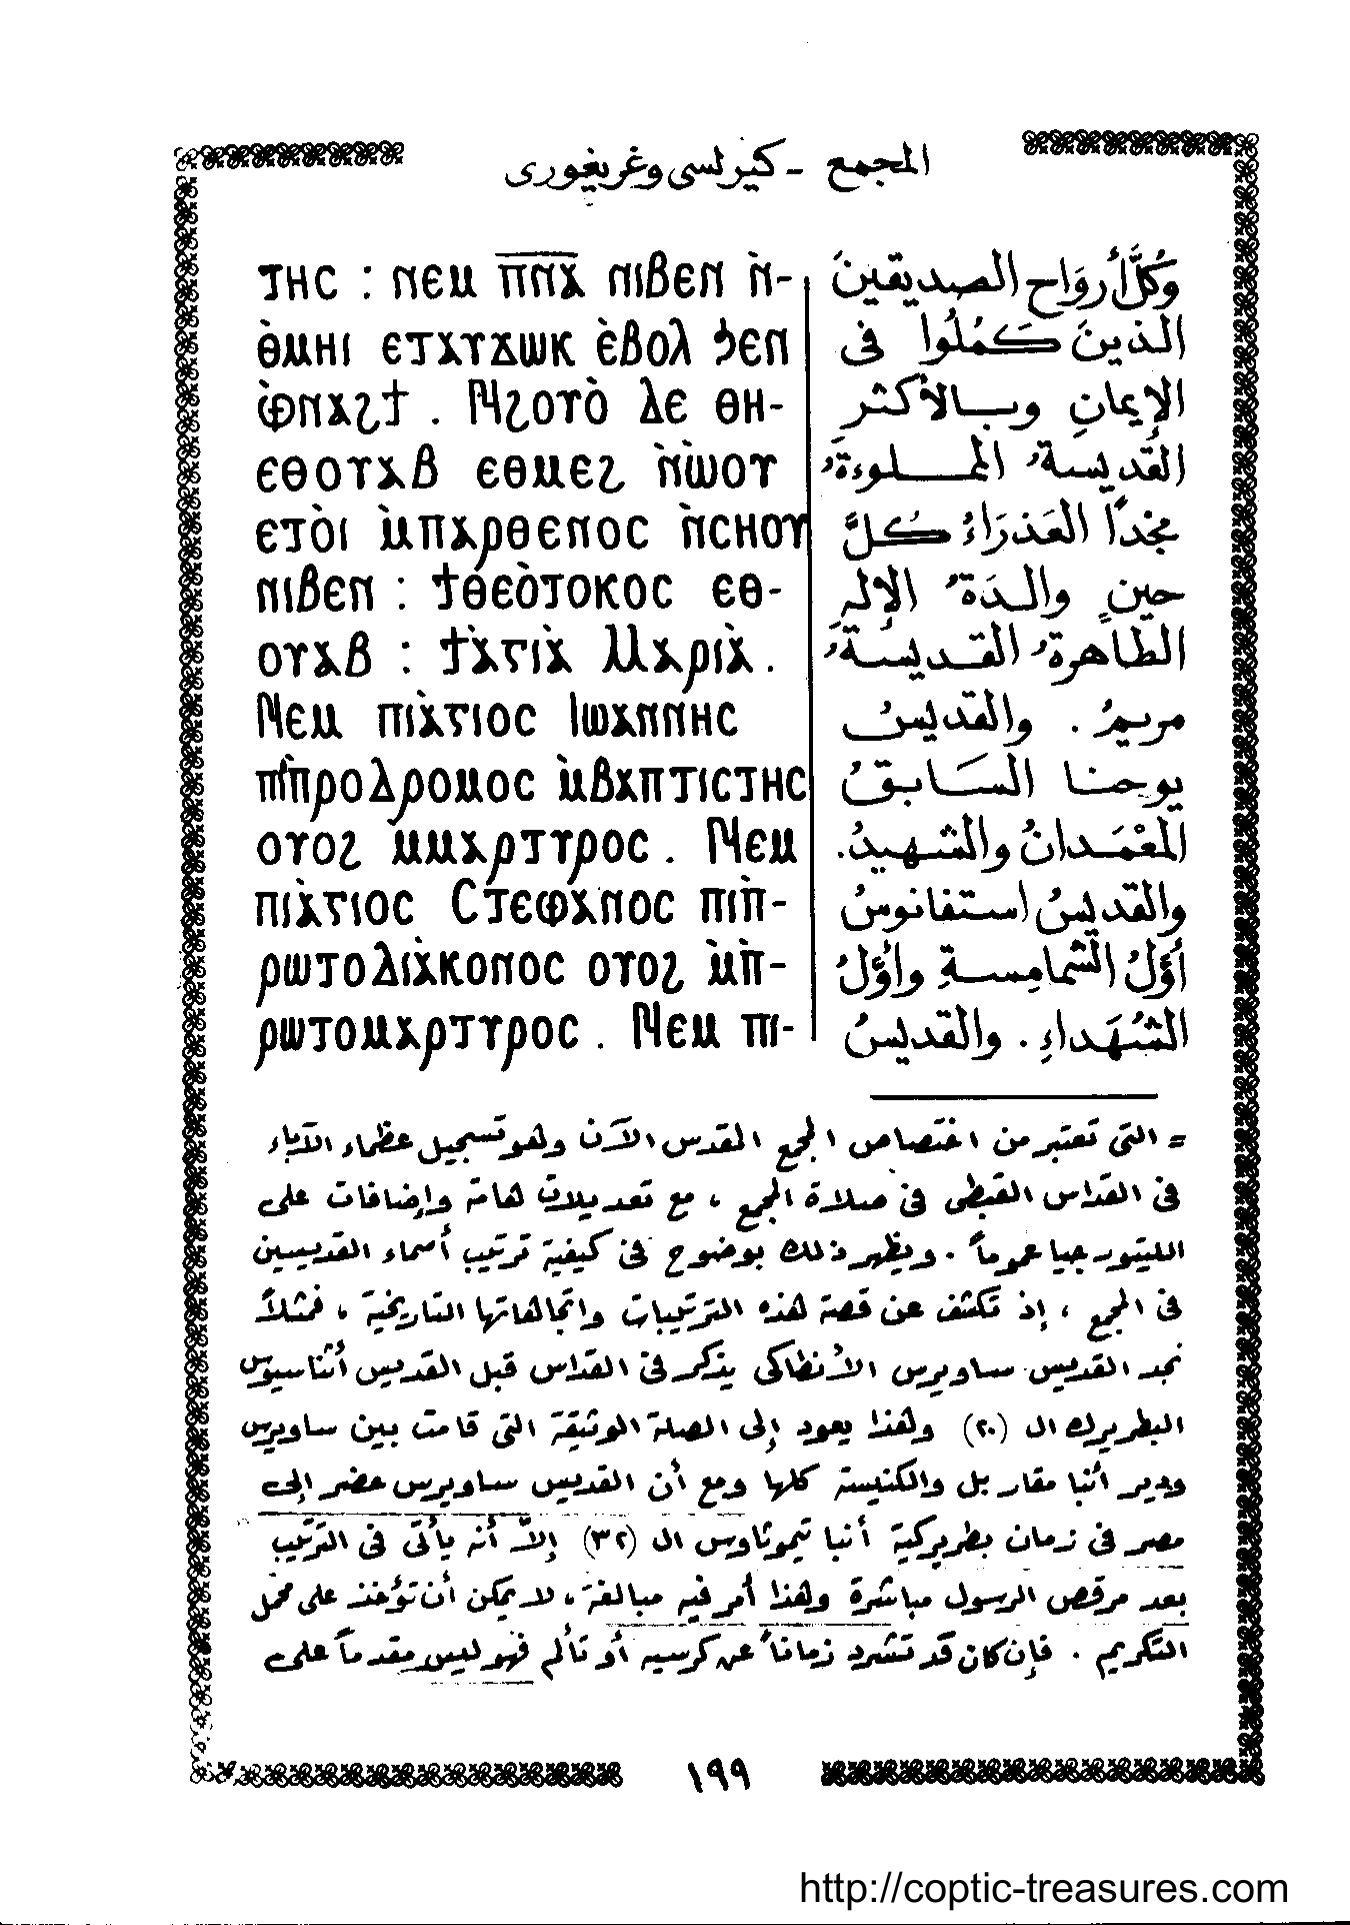 المجمع - كيرلسى وغريغورى
ⲧⲏⲥ : ⲛⲉⲙ ⲡ̅ⲛ̅ⲁ̅ ⲛⲓⲃⲉⲛ ⲛ̀-
ⲑ̀ⲙⲏⲓ ⲉⲧⲁⲩϫⲱⲕ ⲉ̀ⲃⲟⲗ ϧⲉⲛ
ⲫ̀ⲛⲁϩϯ . Ⲛ̀ϩⲟⲩⲟ̀ ⲇⲉ ⲑⲏ-
ⲉⲑⲟⲩⲁⲃ ⲉⲑⲙⲉϩ ⲛ̀ⲱ̀ⲟⲩ
ⲉⲧⲟ̀ⲓ ⲙ̀ⲡⲁⲣⲑⲉⲛⲟⲥ ⲛ̀ⲥⲏⲟⲩ
ⲛⲓⲃⲉⲛ : ϯⲑⲉⲟ̀ⲧⲟⲕⲟⲥ ⲉⲑ-
ⲟⲩⲁⲃ : ϯⲁ̀ⲅⲓⲁ̀ Ⲙⲁⲣⲓⲁ̀ .
Ⲛⲉⲙ ⲡⲓⲁ̀ⲅⲓⲟⲥ Ⲓⲱⲁⲛⲛⲏⲥ
ⲡⲓⲡ̀ⲣⲟⲇⲣⲟⲙⲟⲥ ⲙ̀ⲃⲁⲡⲧⲓⲥⲧⲏⲥ
ⲟⲩⲟϩ ⲙ̀ⲙⲁⲣⲧⲩⲣⲟⲥ . Ⲛⲉⲙ
ⲡⲓⲁ̀ⲅⲓⲟⲥ Ⲥⲧⲉⲫⲁⲛⲟⲥ ⲡⲓⲡ̀-
ⲣⲱⲧⲟⲇⲓⲁ̀ⲕⲟⲛⲟⲥ ⲟⲩⲟϩ ⲙ̀ⲡ̀-
ⲣⲱⲧⲟⲙⲁⲣⲧⲩⲣⲟⲥ . Ⲛⲉⲙ ⲡⲓ-
وَكُلَّ أروَاحِ الصديقينَ
الذينَ كَمُلُوا فى
الإيمانِ وبالأكثرِ
القديسةُ المملوءةُ
مجداً العَذرَاءُ كُلَّ
حينٍ والدَةُ الإلهِ
الطاهرةُ القديسةُ
مريمُ . والقديسُ
يوحنا السَابقُ
المعْمَدانُ والشهيدُ .
والقديسُ استفانوسُ
أوَّلُ الشمامسةِ وأوَّلُ
الشُهَداءِ . والقديسُ
= التى تعتبر من اختصاص المجمع المقدس الآن وهو تسجيل عظماء الآباء
فى القداس القبطى فى صلاة المجمع ، مع تعديلات هامة وإضافات على
الليتورجيا عموماً . ويظهر ذلك بوضوح فى كيفية ترتيب أسماء القديسين
فى المجمع ، إذ تكشف عن قصة هذه الترتيبات واتجاهاتها التاريخية ، فمثلاً
نجد القديس ساويرس الأنطاكى يذكر فى القداس قبل القديس أثناسيوس
البطريرك ال (٢٠) وهذا يعود إلى الصلة الوثيقة التى قامت بين ساويرس
ودير أنبا مقار بل والكنيسة كلها ومع أن القديس ساويرس حضر إلى
مصر فى زمان بطريركية أنبا تيموثاوس ال (٣٢) إلاَّ أنه يأتى فى الترتيب
بعد مرقص الرسول مباشرة وهذا أمر فيه مبالغة ، لا يمكن أن تؤخذ على محمل
التكريم . فإن كان قد تشرد زماناً عن كرسيه أو تألم فهو ليس مقدماً على
١٩٩
http://coptic-treasures.com